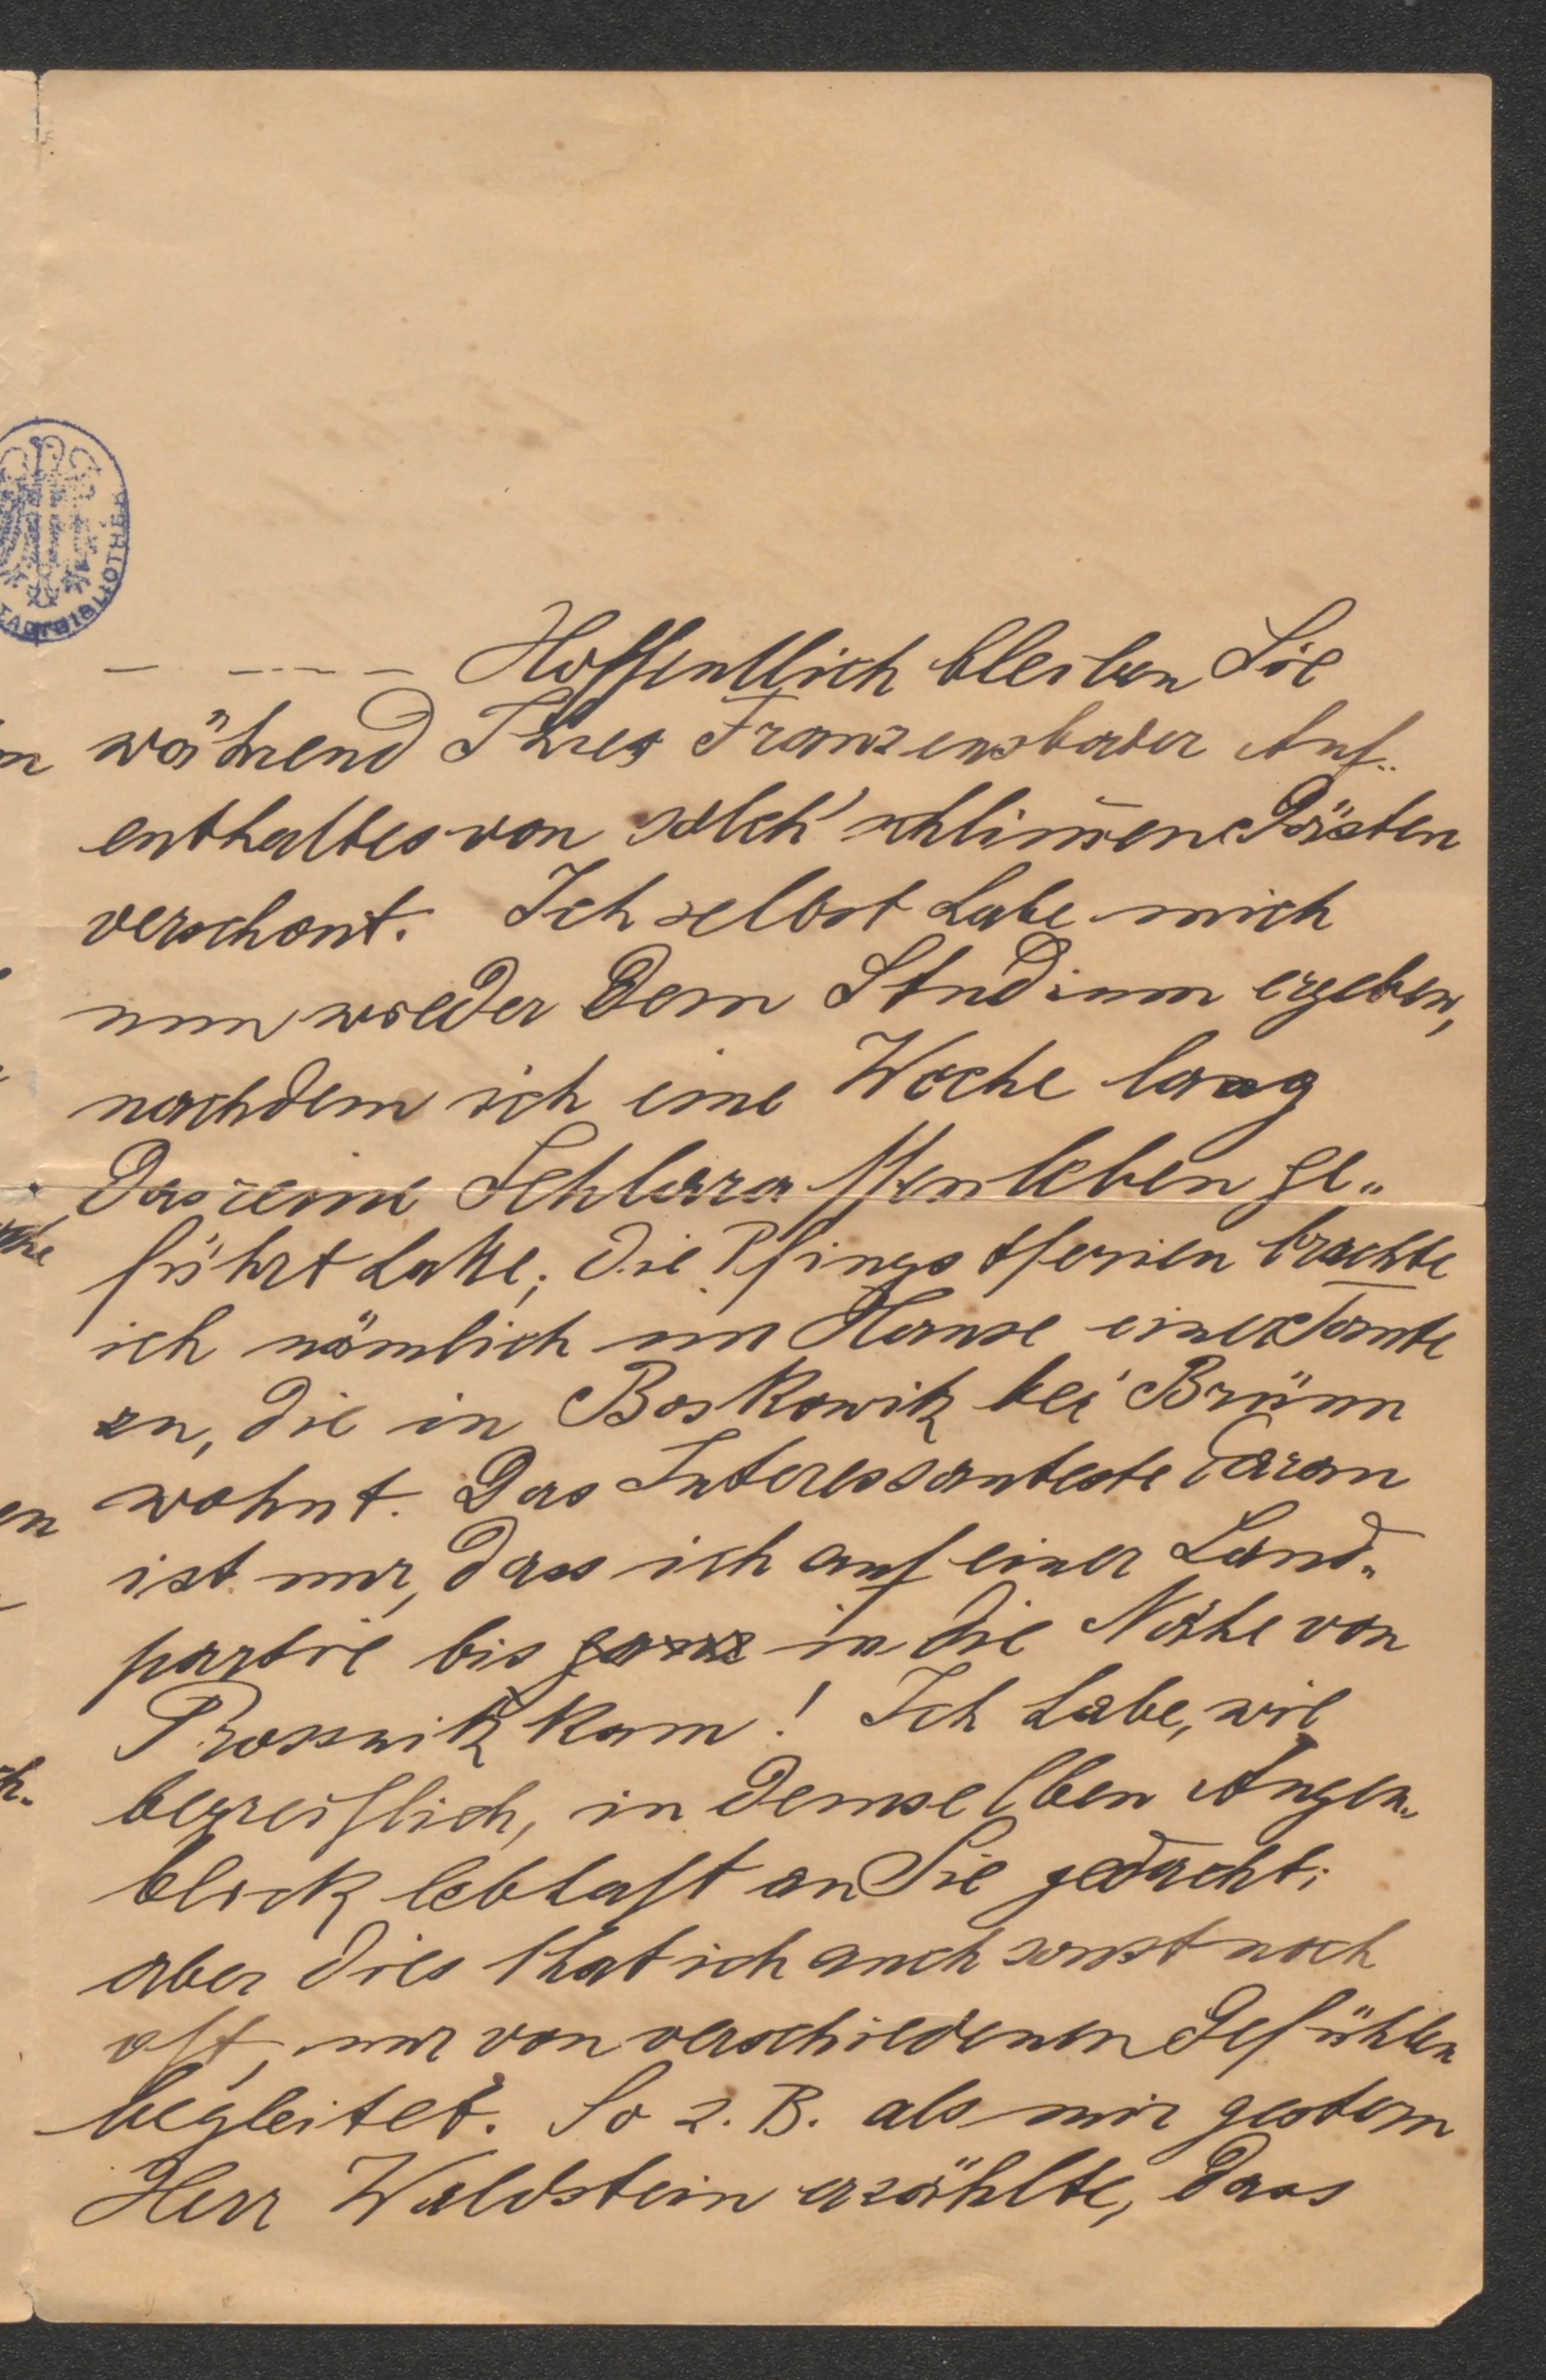 – – – – – Hoffentlich bleiben Sie
während Ihres Franzensbader Auf-
enthaltes von solch' schlim̄en Gästen
verschont. Ich selbst habe mich
nun wieder dem Studium ergeben,
nachdem ich eine Woche lang
das reine Schlaraffenleben ge-
führt hatte; die Pfingstferien brachte
ich nämlich im Hause einer Tante
zu, die in Boskowitz bei Brünn
wohnt. Das Interessanteste daran
ist nur, dass ich auf einer Land-
partie bis ganz in die Nähe von
Prossnitz kam! Ich habe, wie
begreiflich, in demselben Augen-
blick lebhaft an Sie gedacht;
aber dies that ich auch sonst noch
oft, nur von verschiedenen Gefühlen
begleitet. So z. B. als mir gestern
Herr Waldstein erzählte, dass